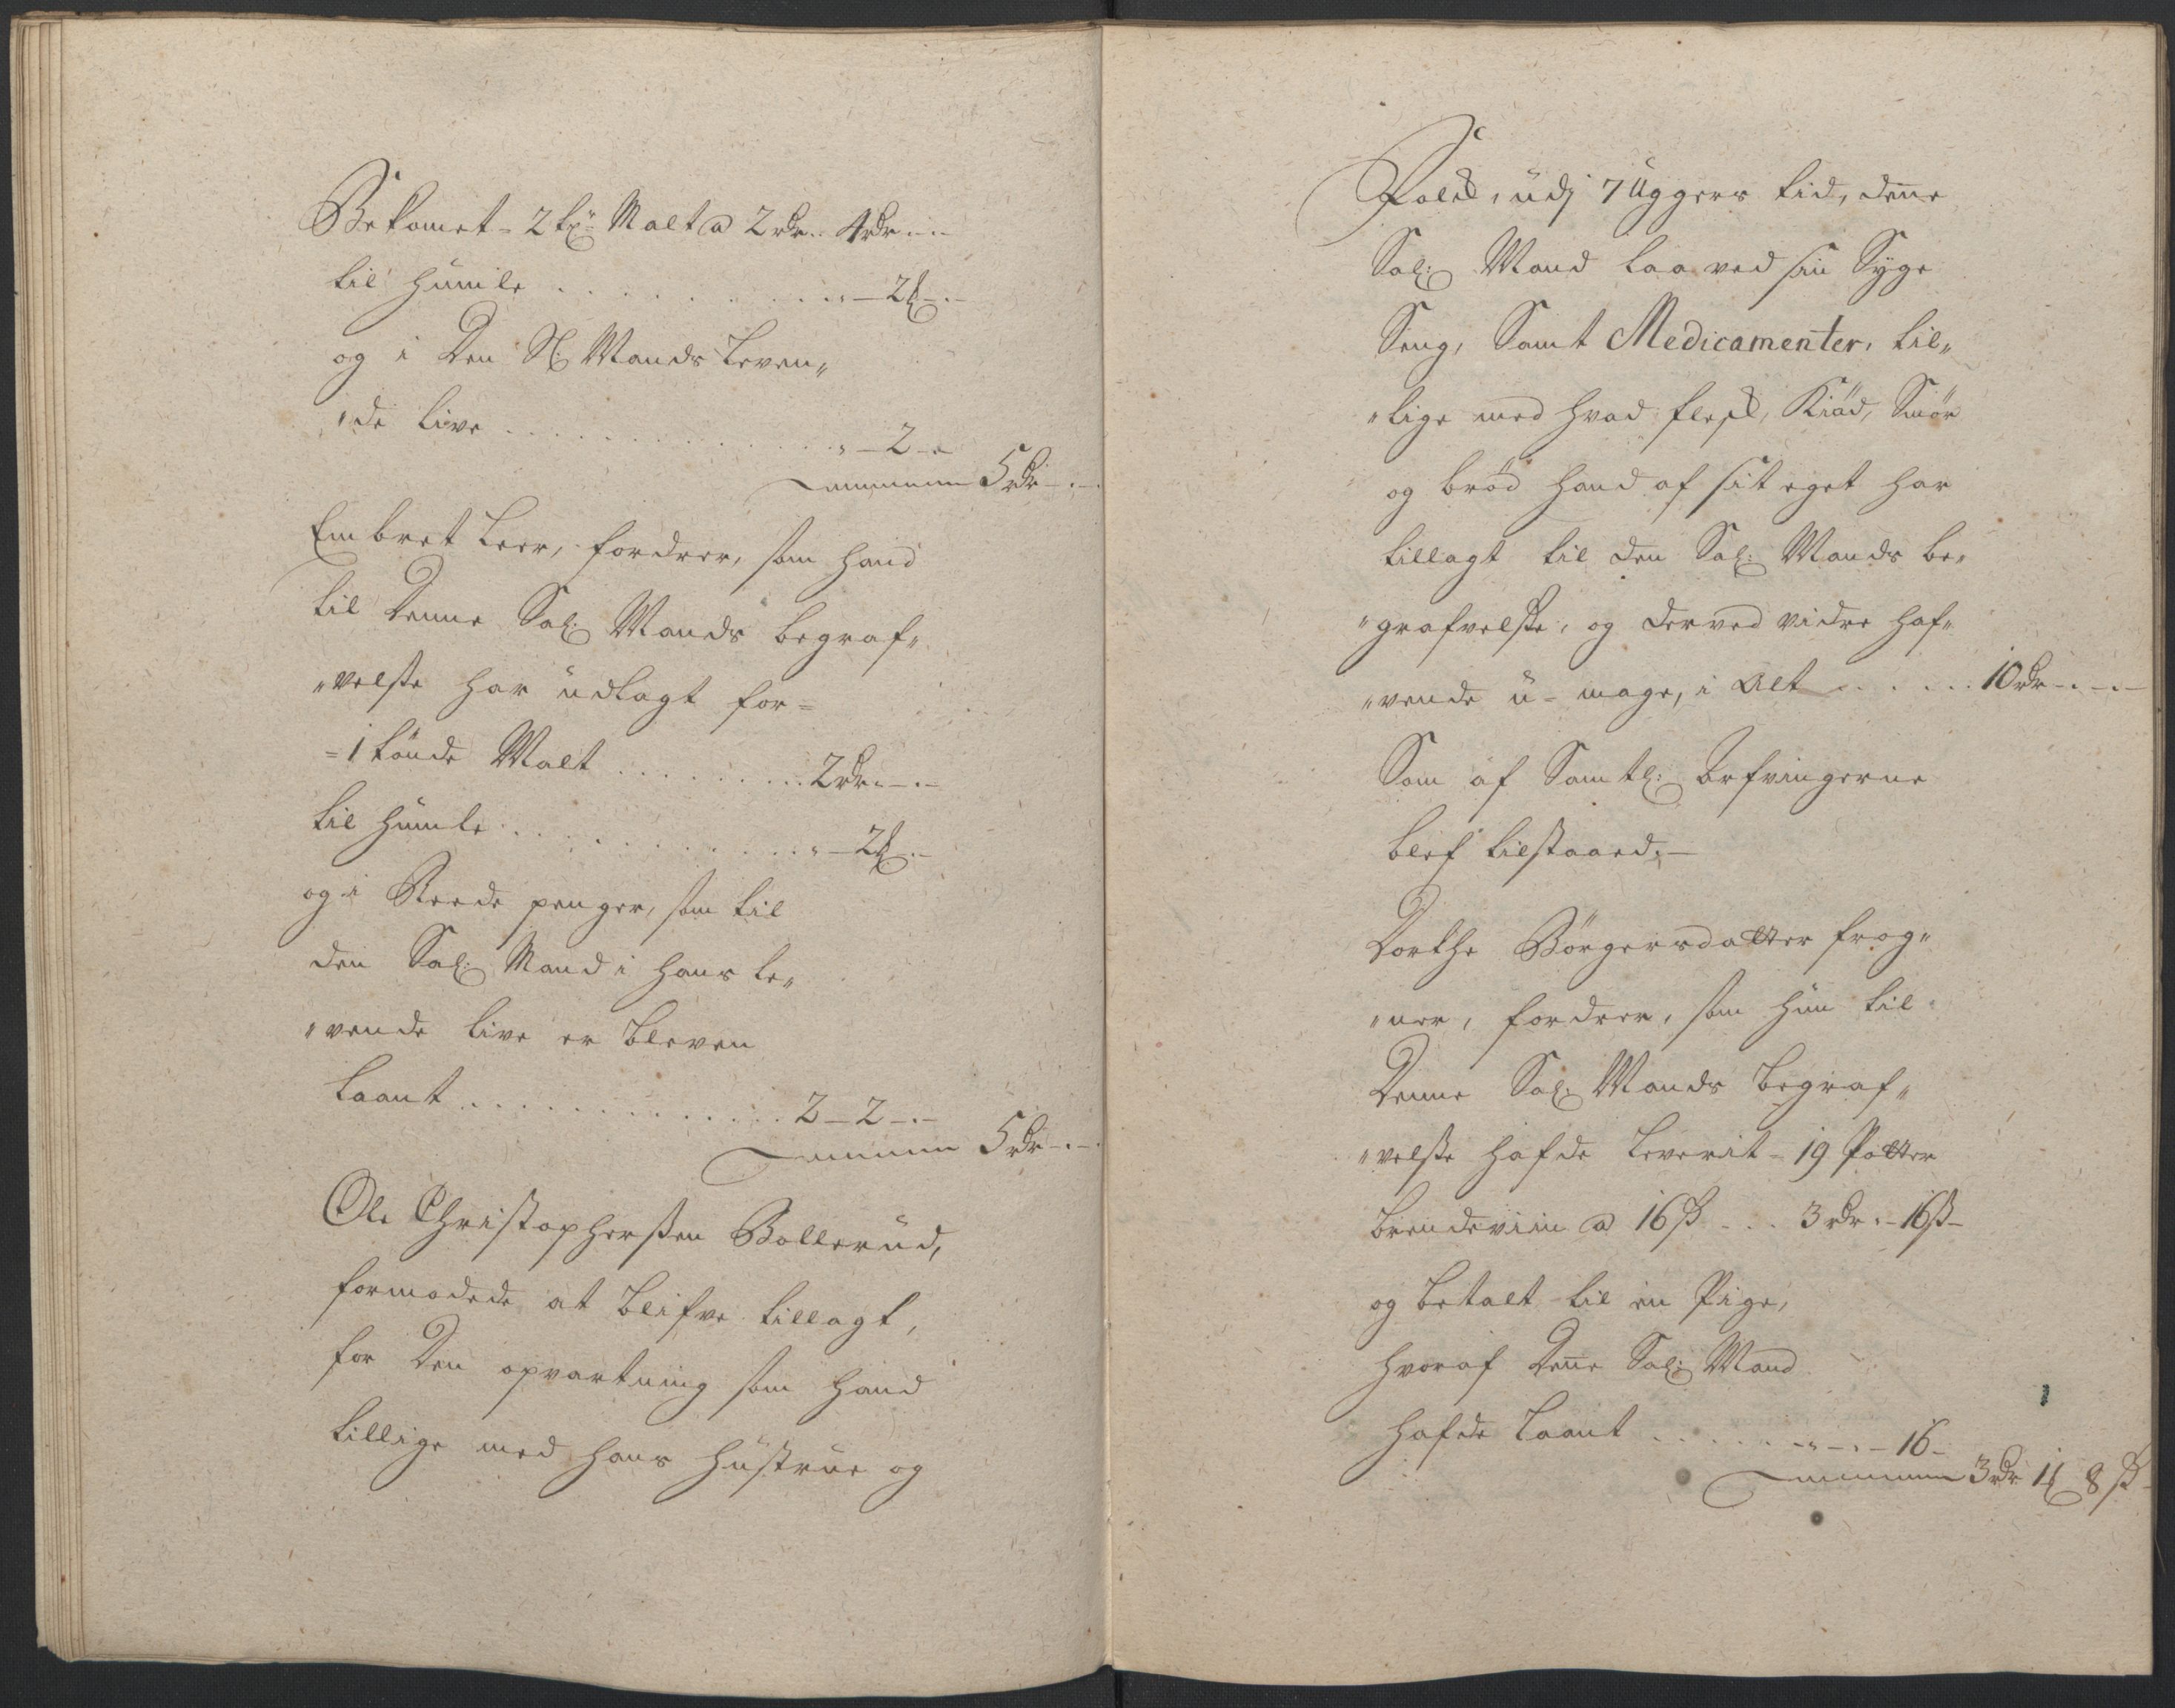 Bekomet = 2 tr: Malt a 2 rdr.. 4 rdr -.-
til humle . . . . . . . . . . . „ — 2 ℔ -.-
og i Den Sl: Mands Leven„
„de Live . . . . . . . . . . . . . „ — 2 - „
5 rdr -.-
Embret Leer, fordrer, som hand
til Denne Sal: Mands begraf„
„velsse har udlagt for =
= 1 tønde Malt . . . . . . . . . 2 rdr. -.-
til humle . . . . . . . . . . . . „ — 2 ℔ .-
og i Reede penger, som til
den Sal: Mand i hans le„
„vende Live er bleven
Laant . . . . . . . . . . . . . . 2 — 2 -.-
5 rdr -.-
Ole Christophersen Bollerud,
formodede at blifve tillagt,
for Den opvartning som hand
tillige med hans hustrue og
Folck, udj 7 Uggers tid, denne
Sal: Mand laa ved sin Syge
Seng, Samt Medicamenter, til„
„lige med hvad flesk, Kiød, Smør
og brød hand af sit eget har
tillagt til den Sal: Mands be„
„grafvelsse, og derved vidre haf„
„vende u = mage, i Alt . . . . . 10 rdr -.-.-
Som af Samtl: Arfvingerne
blef tilstaaed. —
Dorthe Børgersdatter frog„
„ner, fordrer, som hun til
Denne Sal: Mands begraf„
„velsse hafde Leverit = 19 Potter
brendeviin a 16 ß . . . 3 rdr. - 16 ß -
og betalt til en Pige,
hvoraf Denne Sal: Mand
hafde Laant . . . . . . „ -.- 16 -
3 rdr 1 ℔ 8 ß -